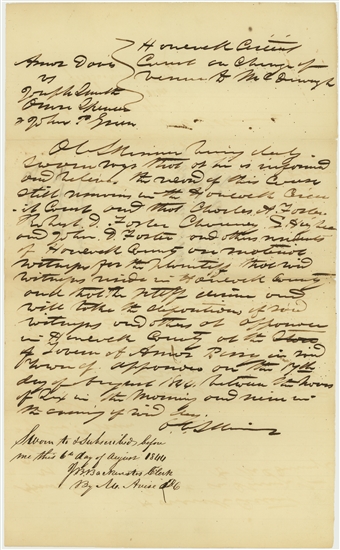 Hancock Circuit
Amos Davis Court on Change of
vs Venue to McDonough
Joseph Smith
Orson Spencer
& John P. Green
O C Skinner being duly
sworn says that he is informed
and believes the record of this cause
still remains in the Hancock Circu
it Court and that Charles A. Foster
Robert D. Foster Chauncey L. Higbee
and John D. Foster and others residents
of Hancock County are material
witnesses for the plaintiff that said
witnesses reside in Hancock County
and that the plaintiff can and
will take the depositions of said
witnesses and others at
in Hancock County at the Store
of Amos Davis in said
Town of on the 17th
day of August 1844 between the hours
of Six in the Morning and nine in
the evening of said day.
O C Skinner
Sworn to & Subscribed before
me this 6th day of August 1844
J B Backenstos Clerk
By M. Avise D C